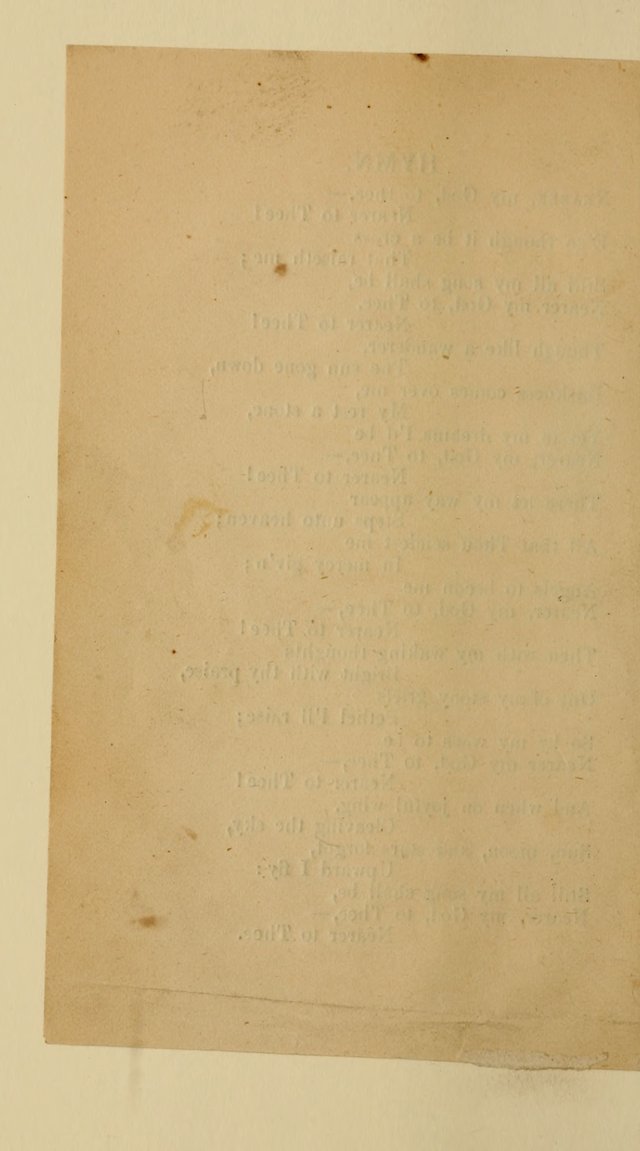 HYMN.
NEARER, my God, to Thee,—
Nearer to Thee!
E'en though it be a cross
That raiseth me;
Still all my song shall be,
Nearer my God, to Thee,
Nearer to Thee!
Though like a wanderer,
The sun gone down,
Darkness comes over me,
My rest a stone,
in my dreams I'd be
Nearer, my God, to Thee,—
Nearer to Thee!
There let my way appear
Steps unto heaven;
All that Thou sendest me
In mercy giv'n;
Angels to beckon me
Nearer, my God, to Thee,—
Nearer to Thee!
Then with my waking thoughts
Bright with thy praise,
Out of my stony griefs
Bethel I'll raise;
So by my woes to be
Nearer my God, to Thee,—
Nearer to Thee!
And when on joyful wing,
Cleaving the sky,
Sun, moon, and stars forgot,
Upward I fly;
Still all my song shall be,
Nearer, my God, to Thee,—
Nearer to Thee.